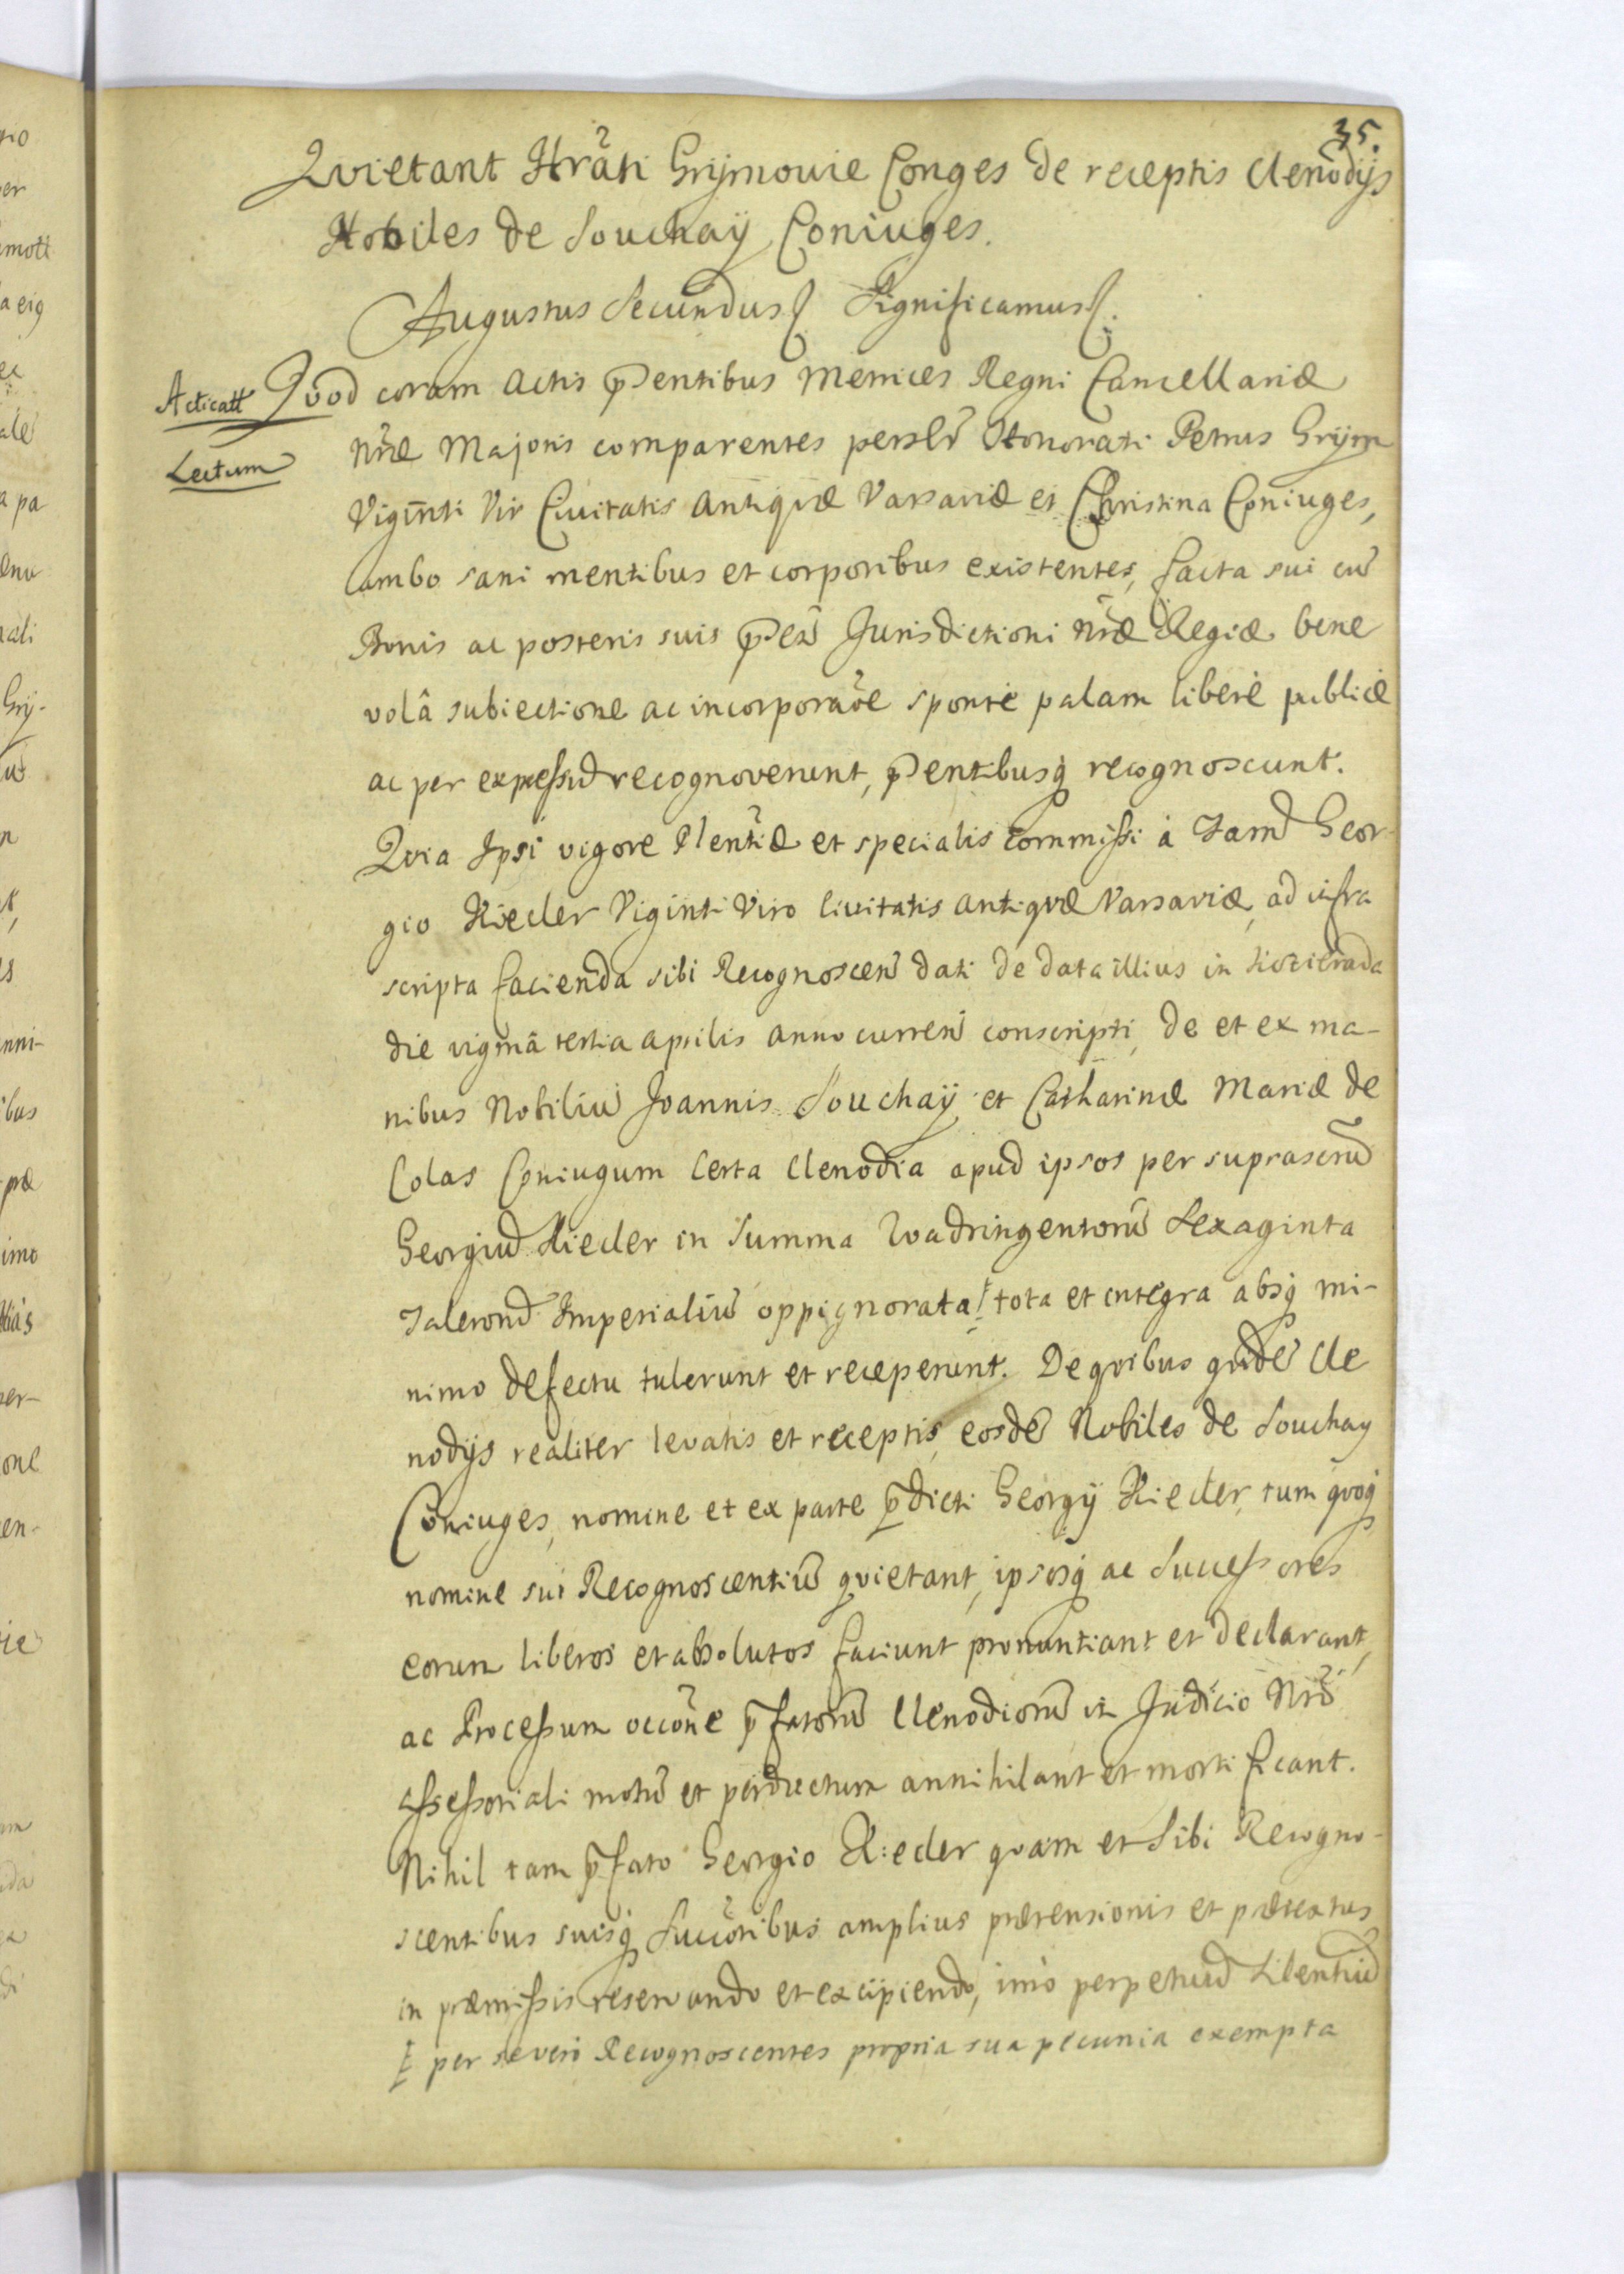 35.
Qvietant Hrãti Grÿmowie Conges de receptis Clenodÿs
Nobiles de Souchaÿ Coniuges.
Augustus Secundus Significamus.
Acticatt
Lectum
Qvod coram Actis p̃entibus Metrices Regni Cancellariæ
Nr̃æ Majoris comparentes persłr Honorati Petrus Grÿm
Viginti Vir Civitatis Antiqvæ Varsaviæ et Christina Coniuges,
ambo sani mentibus et corporibus existentes, facta sui cũ
Bonis ac posteris suis Jurisdictioni Nr̃æ Regiæ bene
volâ subiectione ac incorporãõe sponte palam liberè publicè
ac per expressũ recognoverunt, p̃entibusq̃ recognoscunt.
Qvia Ipsi vigore Plentiæ et specialis commissi à Fam̃ Geor-
gio Rieder Viginti Viro Civitatis Antiqvæ Varsaviæ, ad infra
scripta facienda sibi Recognoscen̄ dati de data illius in
die vigm̃â tertia Aprilis Anno curren̄ conscripti, de et ex ma-
nibus Nobiliũ Joannis Souchaÿ et Catharinæ Mariæ de
Colas Coniugum Certa Clenodia apud ipsos per suprascrũ
Georgiũ Rieder in Summa Qvadringentorũ Sexaginta
Talerorũ Imperialiũ oppignorata ⱡ tota et integra absq̃ mi-
nimo defectu tulerunt et receperunt. De qvibus qvidẽ Cle
nodÿs realiter levatis et receptis, eosdẽ Nobiles de Souchay
Coniuges, nomine et ex parte p̃dicti Georgÿ Rieder, tum qvoq̃
nomine sui Recognoscentiũ qvietant, ipsosq̃ ac Successores
eorum liberos et absolutos faciunt pronuntiant et declarant,
ac Processum occõne p̃fatorũ Clenodiorũ in Judicio Nr̃o
Assessoriali motũ et perductum annihilant et mortificant.
Nihil tam p̃fato Georgio Rieder qvam et Sibi Recogno-
scentibus suisq̃ Succõribus amplius prætensionis et prætextus
in præmissis reservando et excipiendo, imò perpetuũ Silentiũ
ⱡ per Recognoscentes propria sua pecunia exempta